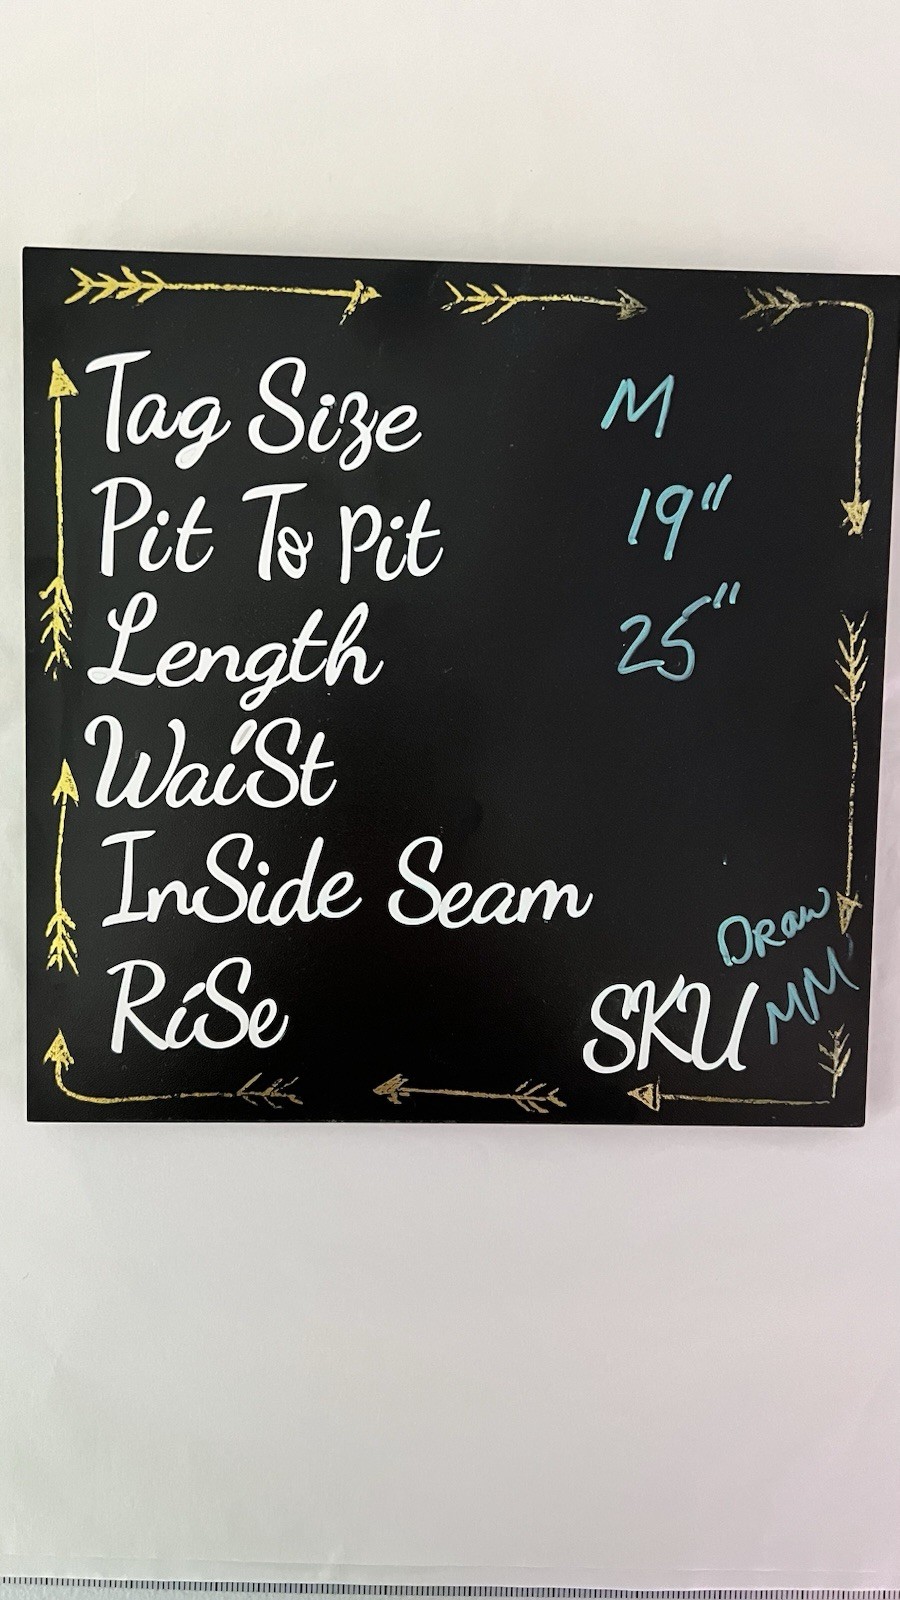 Tag Size M
Pit To Pit 19"
Length 25"
WaiSt
InSide Seam
RiSe
SKU Draw
MM